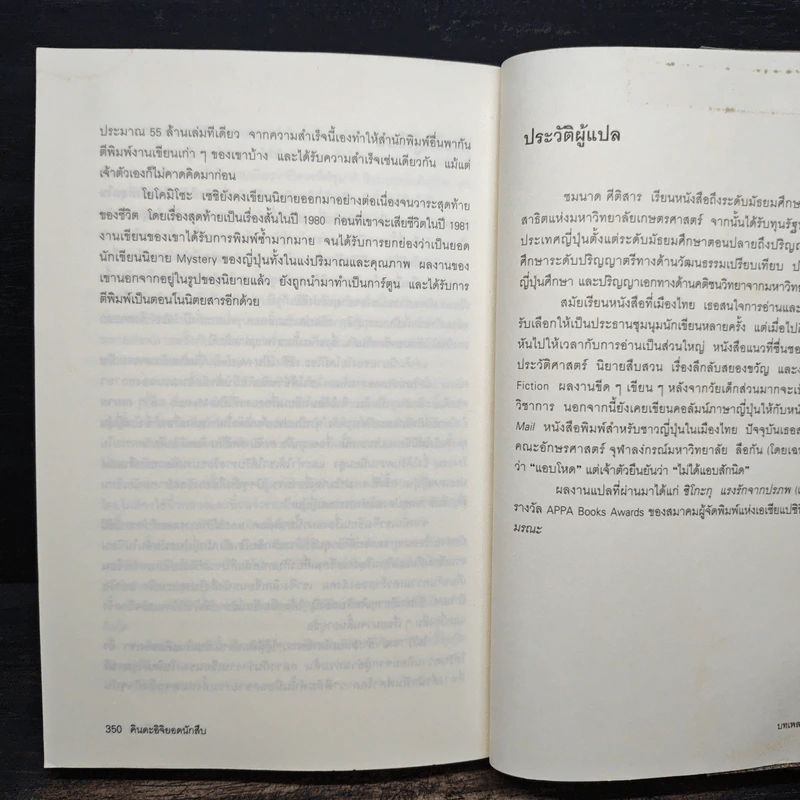 ประมาณ 55 ล้านเล่มทีเดียว จากความสำเร็จนี้เองทำให้สำนักพิมพ์อื่นพากัน
ตีพิมพ์งานเขียนเก่า ๆ ของเขาบ้าง และได้รับความสำเร็จเช่นเดียวกัน แม้แต่
เจ้าตัวเองก็ไม่คาดคิดมาก่อน
โยโคมิโซะ เซชิยังคงเขียนนิยายออกมาอย่างต่อเนื่องจนวาระสุดท้าย
ของชีวิต โดยเรื่องสุดท้ายเป็นเรื่องสั้นในปี 1980 ก่อนที่เขาจะเสียชีวิตในปี 1981
งานเขียนของเขาได้รับการพิมพ์ซ้ำมากมาย จนได้รับการยกย่องว่าเป็นยอด
นักเขียนนิยาย Mystery ของญี่ปุ่นทั้งในแง่ปริมาณและคุณภาพ ผลงานของ
เขานอกจากอยู่ในรูปของนิยายแล้ว ยังถูกนำมาทำเป็นการ์ตูน และได้รับการ
ตีพิมพ์เป็นตอนในนิตยสารอีกด้วย
350 คินดะอิจิยอดนักสืบ
ประวัติผู้แปล
ชมนาด ศีติสาร เรียนหนังสือถึงระดับมัธยมศึกษา
สาธิตแห่งมหาวิทยาลัยเกษตรศาสตร์ จากนั้นได้รับทุนรัฐ
ประเทศญี่ปุ่นตั้งแต่ระดับมัธยมศึกษาตอนปลายถึงปริญ
ศึกษาระดับปริญญาตรีทางด้านวัฒนธรรมเปรียบเทียบ ป
ญี่ปุ่นศึกษา และปริญญาเอกทางด้านคติชนวิทยาจากมหาวิท
สมัยเรียนหนังสือที่เมืองไทย เธอสนใจการอ่านและ
รับเลือกให้เป็นประธานชุมนุมนักเขียนหลายครั้ง แต่เมื่อไป
หันไปให้เวลากับการอ่านเป็นส่วนใหญ่ หนังสือแนวที่ชื่นชอ
ประวัติศาสตร์ นิยายสืบสวน เรื่องลึกลับสยองขวัญ และ
Fiction ผลงานขีด ๆ เขียน ๆ หลังจากวัยเด็กส่วนมากจะเป็
วิชาการ นอกจากนี้ยังเคยเขียนคอลัมน์ภาษาญี่ปุ่นให้กับหนั
Mail หนังสือพิมพ์สำหรับชาวญี่ปุ่นในเมืองไทย ปัจจุบันเธอส
คณะอักษรศาสตร์ จุฬาลงกรณ์มหาวิทยาลัย ลือกัน (โดยเฉพ
ว่า “แอบโหด” แต่เจ้าตัวยืนยันว่า “ไม่ได้แอบสักนิด”
ผลงานแปลที่ผ่านมาได้แก่ ชิโกะกุ แรงรักจากปรภพ
รางวัล APPA Books Awards ของสมาคมผู้จัดพิมพ์แห่งเอเชียแปซิฟิ
มรณะ
บทเพล